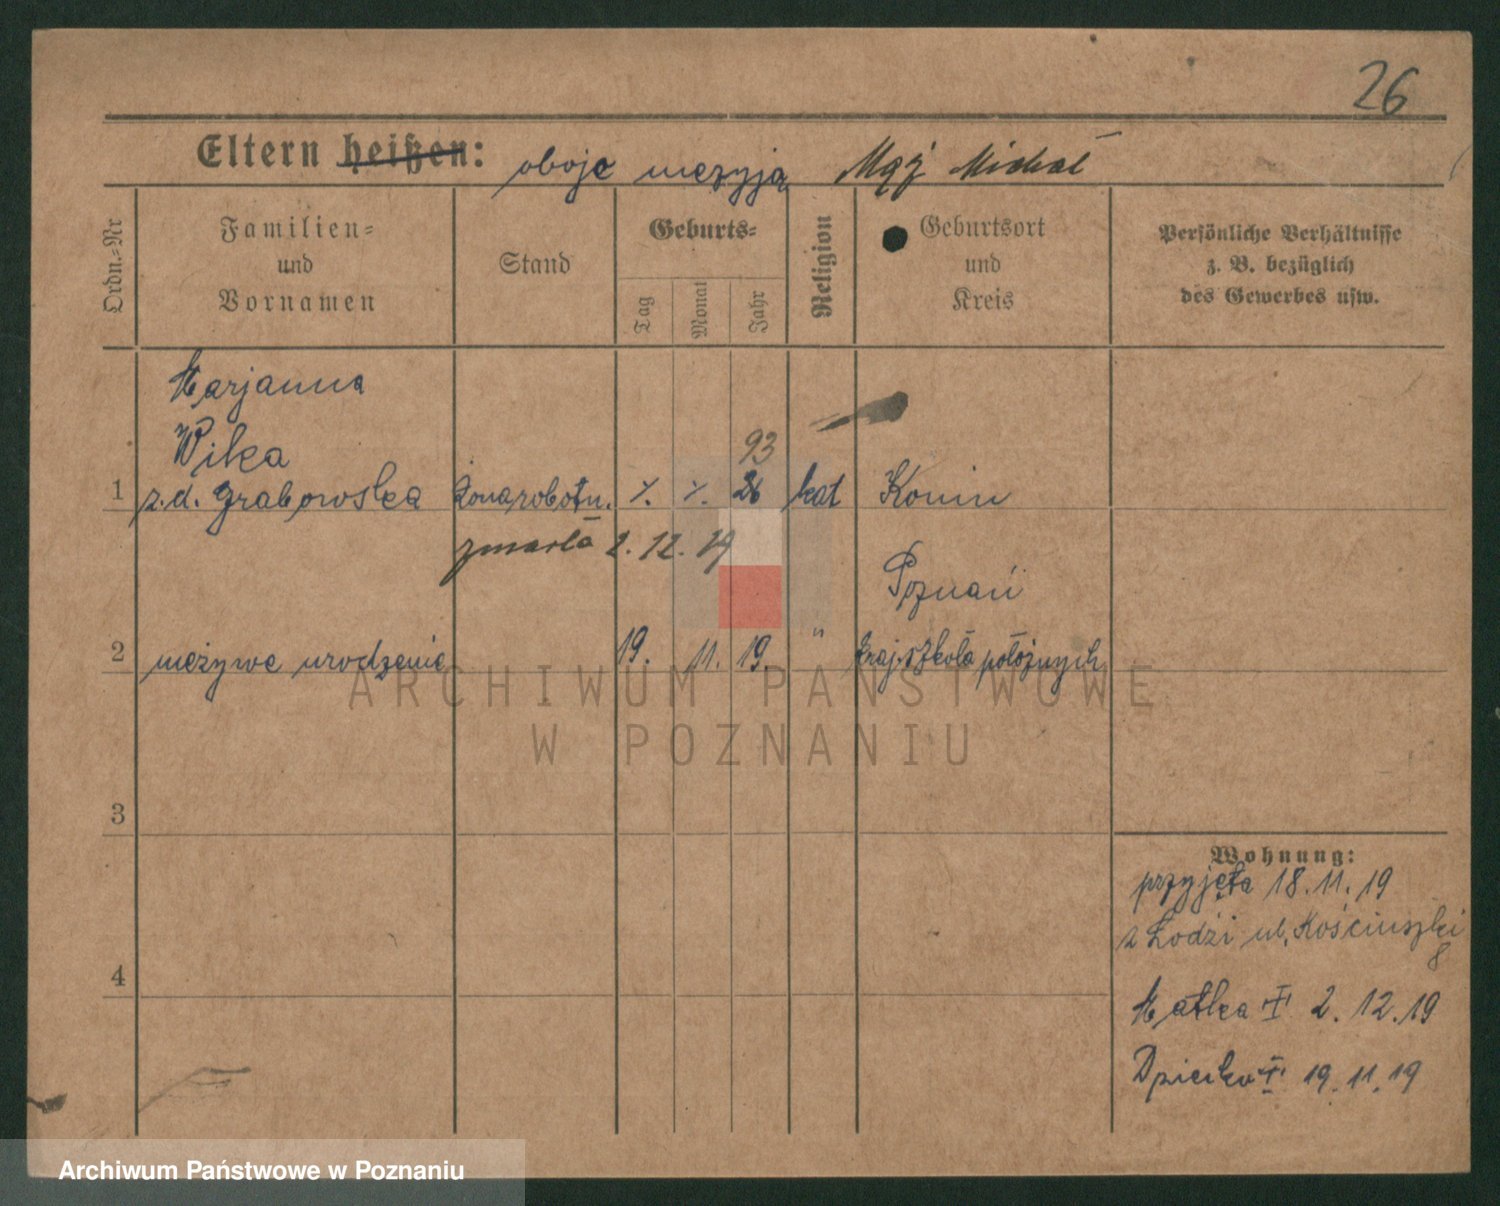 26
Eltern heißen: oboje nieżyją Mąż Michał
Ordn.-Nr
Familien-
und
Vornamen
Stand
Geburts-
Tag
Monat
Jahr
Religion
Geburtsort
und
Kreis
Persönliche Verhältnisse
z. B. bezüglich
des Gewerbes usw.
Marjanna
Wilka
93
1 z.d. Grabowska żona robotn. 26 kat Konin
zmarła 2. 12. 19
Poznań
2 nieżywe urodzenie 19. 11. 19. " kraj. szkoła położnych
ARCHIWUM PAŃSTWOWE
W POZNANIU
3
Wohnung:
przyjęta 18. 11. 19
z Łodzi ul. Kościuszki
8
4
Matka † 2. 12. 19
Dziecko † 19. 11. 19
Archiwum Państwowe w Poznaniu